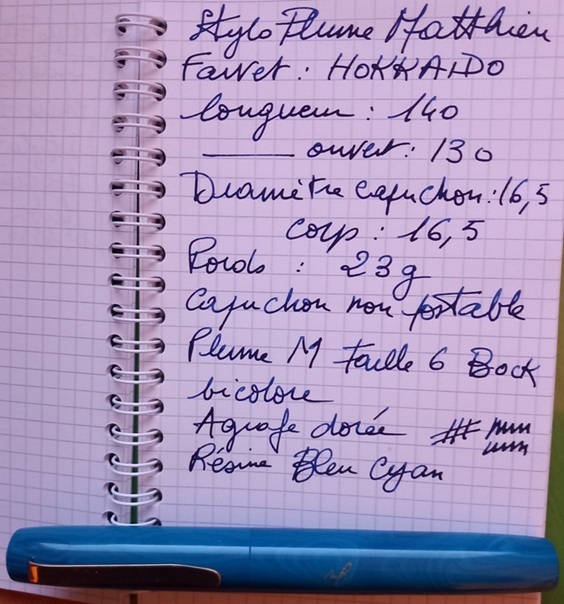 Stylo Plume Matthieu
Favet : HOKKAIDO
longueur : 140
——— ouvert : 130
Diamètre capuchon : 16,5
corp : 16,5
Poids : 23g
Capuchon non postable
Plume M taille 6 Bock
bicolore
Agrafe dorée
Résine Bleu Cyan